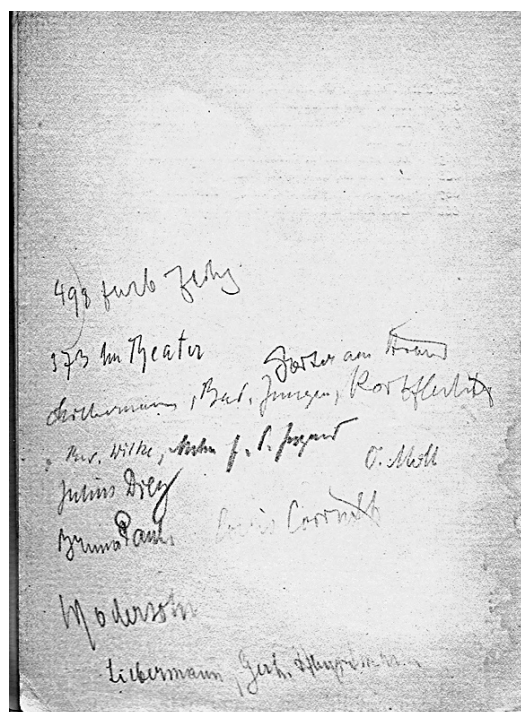 498 farb
373 Im Theater
am Strand
Liebermann, Bad. Jungen, Korbflechter
Rud. Wilke, f. d. Jugend
O. Moll
Julius Diez
Bruno Paul Lovis Corinth
Modersohn
Liebermann, Gerh. Hauptmann